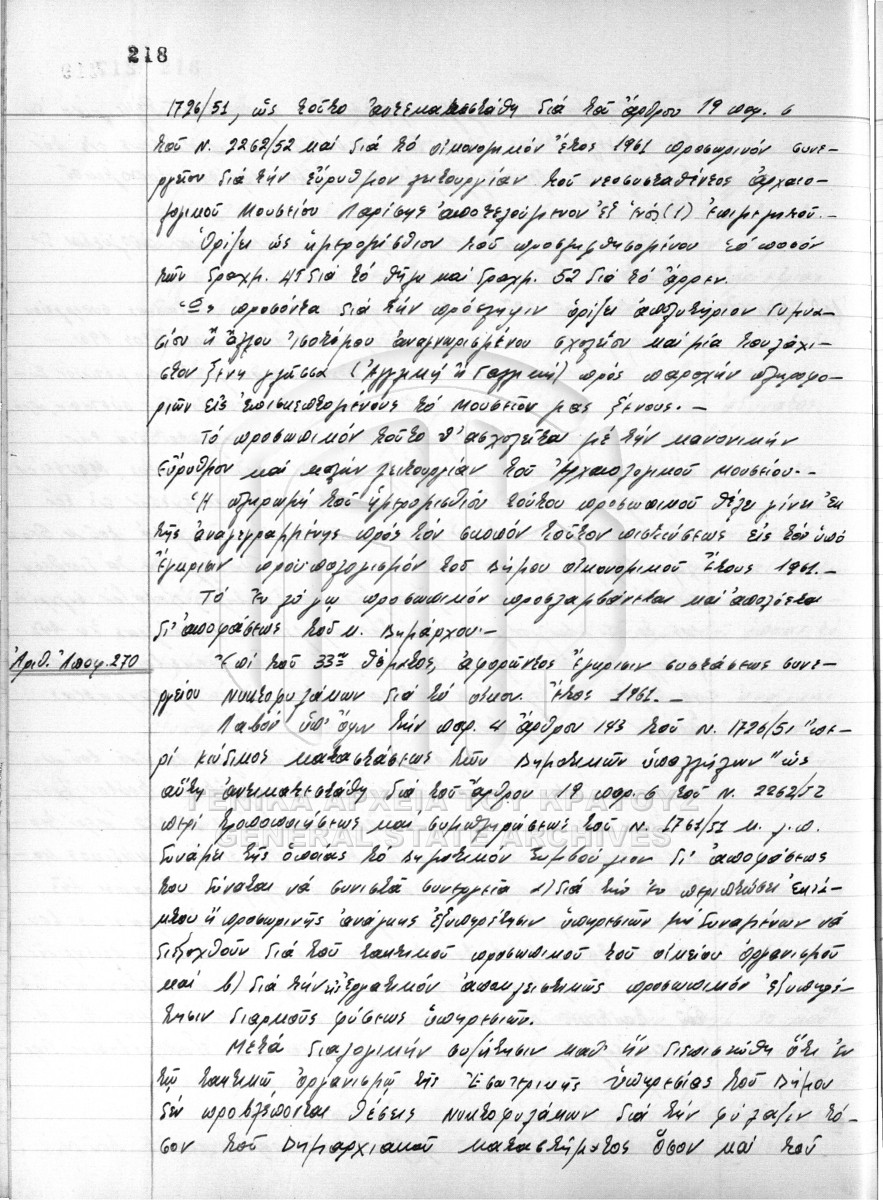 218
1726/51, ὡς τοῦτο ἀντεκατεστάθη διά τοῦ ἄρθρου 19 παρ. 6
τοῦ Ν. 2262/52 καί διά τό οἰκονομικόν ἔτος 1961 προσωρινόν συνερ-
γεῖον διά τήν εὔρυθμον λειτουργίαν τοῦ νεοσυσταθέντος ἀρχαιο-
λογικοῦ Μουσείου Λαρίσης ἀποτελούμενον ἐξ ἑνός (1) ἐπιμελητοῦ.-
Ὁρίζει ὡς ἡμερομίσθιον τοῦ προσληφθησομένου τό ποσόν
τῶν δραχμ. 45 διά τό θῆλυ καί δραχμ. 52 διά τό ἄρρεν.
Ὡς προσόντα διά τήν πρόσληψιν ὁρίζει ἀπολυτήριον Γυμνα-
σίου ἤ ἄλλου ἰσοτίμου ἀναγνωρισμένου σχολείου καί μία τουλάχι-
στον ξένη γλῶσσα (Ἀγγλική ἤ Γαλλική) πρός παροχήν πληροφο-
ριῶν εἰς ἐπισκεπτομένους τό Μουσεῖον μας ξένους.-
Τό προσωπικόν τοῦτο θ' ἀσχολεῖται μέ τήν κανονικήν
εὔρυθμον καί καλήν λειτουργίαν τοῦ Ἀρχαιολογικοῦ Μουσείου.-
Ἡ πληρωμή τοῦ ἡμερομισθίου τούτου προσωπικοῦ θέλει γίνει ἐκ
τῆς ἀναγεγραμμένης πρός τόν σκοπόν τοῦτον πιστώσεως εἰς τόν ὑπό
ἔγκρισιν προϋπολογισμόν τοῦ Δήμου οἰκονομικοῦ ἔτους 1961.-
Τό ἐν λόγῳ προσωπικόν προσλαμβάνεται καί ἀπολύεται
δι' ἀποφάσεως τοῦ κ. Δημάρχου.-
Ἀριθ. Ἀποφ. 270
Ἐπί τοῦ 33ου θέματος, ἀφορῶντος ἔγκρισιν συστάσεως συνερ-
γείου Νυκτοφυλάκων διά τό οἰκον. ἔτος 1961.-
Λαβόν ὑπ' ὄψιν τήν παρ. 4 ἄρθρου 143 τοῦ Ν. 1726/51 "πε-
ρί κώδικος καταστάσεως τῶν Δημοτικῶν ὑπαλλήλων" ὡς
αὕτη ἀντικατεστάθη διά τοῦ ἄρθρου 19 παρ. 6 τοῦ Ν. 2262/52
περί τροποποιήσεως καί συμπληρώσεως τοῦ Ν. 1761/51 κ.λ.π.
δυνάμει τῆς ὁποίας τό Δημοτικόν Συμβούλιον δι' ἀποφάσεως
του δύναται νά συνιστᾶ συνεργεῖα α) διά τήν ἐν περιπτώσει ἐκτά-
κτου ἤ προσωρινῆς ἀνάγκης ἐξυπηρέτησιν ὑπηρεσιῶν μή δυναμένων νά
διεξαχθοῦν διά τοῦ τακτικοῦ προσωπικοῦ τοῦ οἰκείου ὀργανισμοῦ
καί β) διά τήν μέ ἐργατικόν ἀποκλειστικῶς προσωπικόν ἐξυπηρέ-
τησιν διαρκοῦς φύσεως ὑπηρεσιῶν.
Μετά διαλογικήν συζήτησιν καθ' ἥν διεπιστώθη ὅτι ἐν
τῷ τακτικῷ ὀργανισμῷ τῆς Ἐσωτερικῆς ὑπηρεσίας τοῦ Δήμου
δέν προβλέπονται θέσεις Νυκτοφυλάκων διά τήν φύλαξιν τό-
σον τοῦ Δημαρχιακοῦ καταστήματος ὅσον καί τοῦ
ΓΕΝΙΚΑ ΑΡΧΕΙΑ ΤΟΥ ΚΡΑΤΟΥΣ
GENERAL STATE ARCHIVES